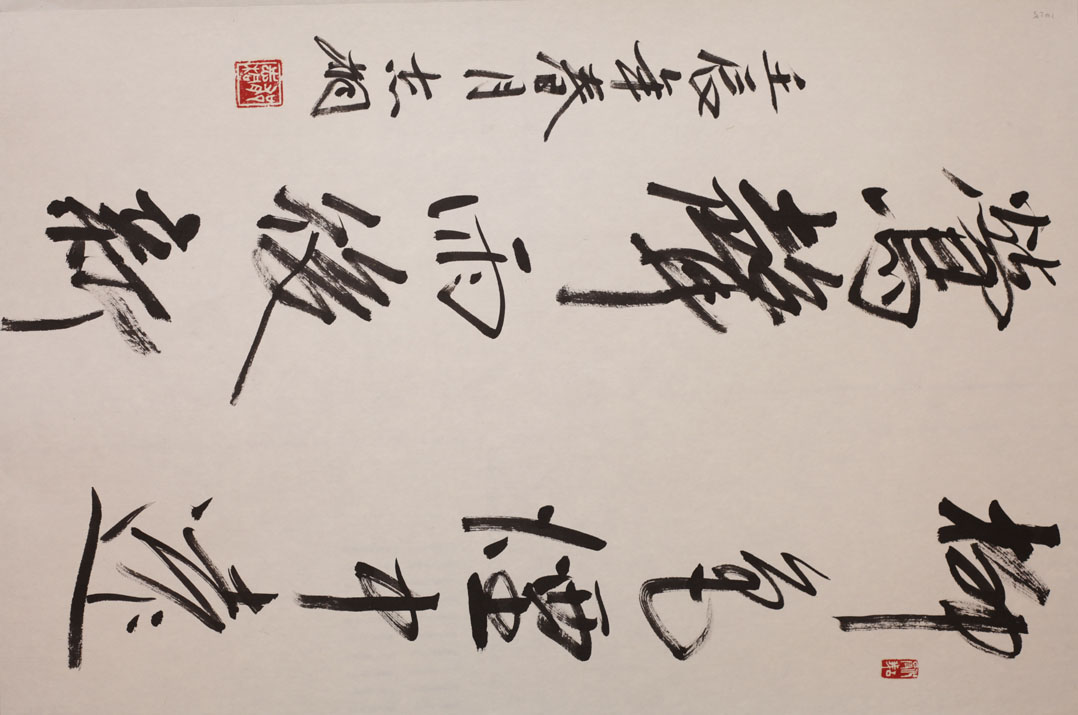 柳色煙中遠
鶯聲雨後新
壬辰年春月志